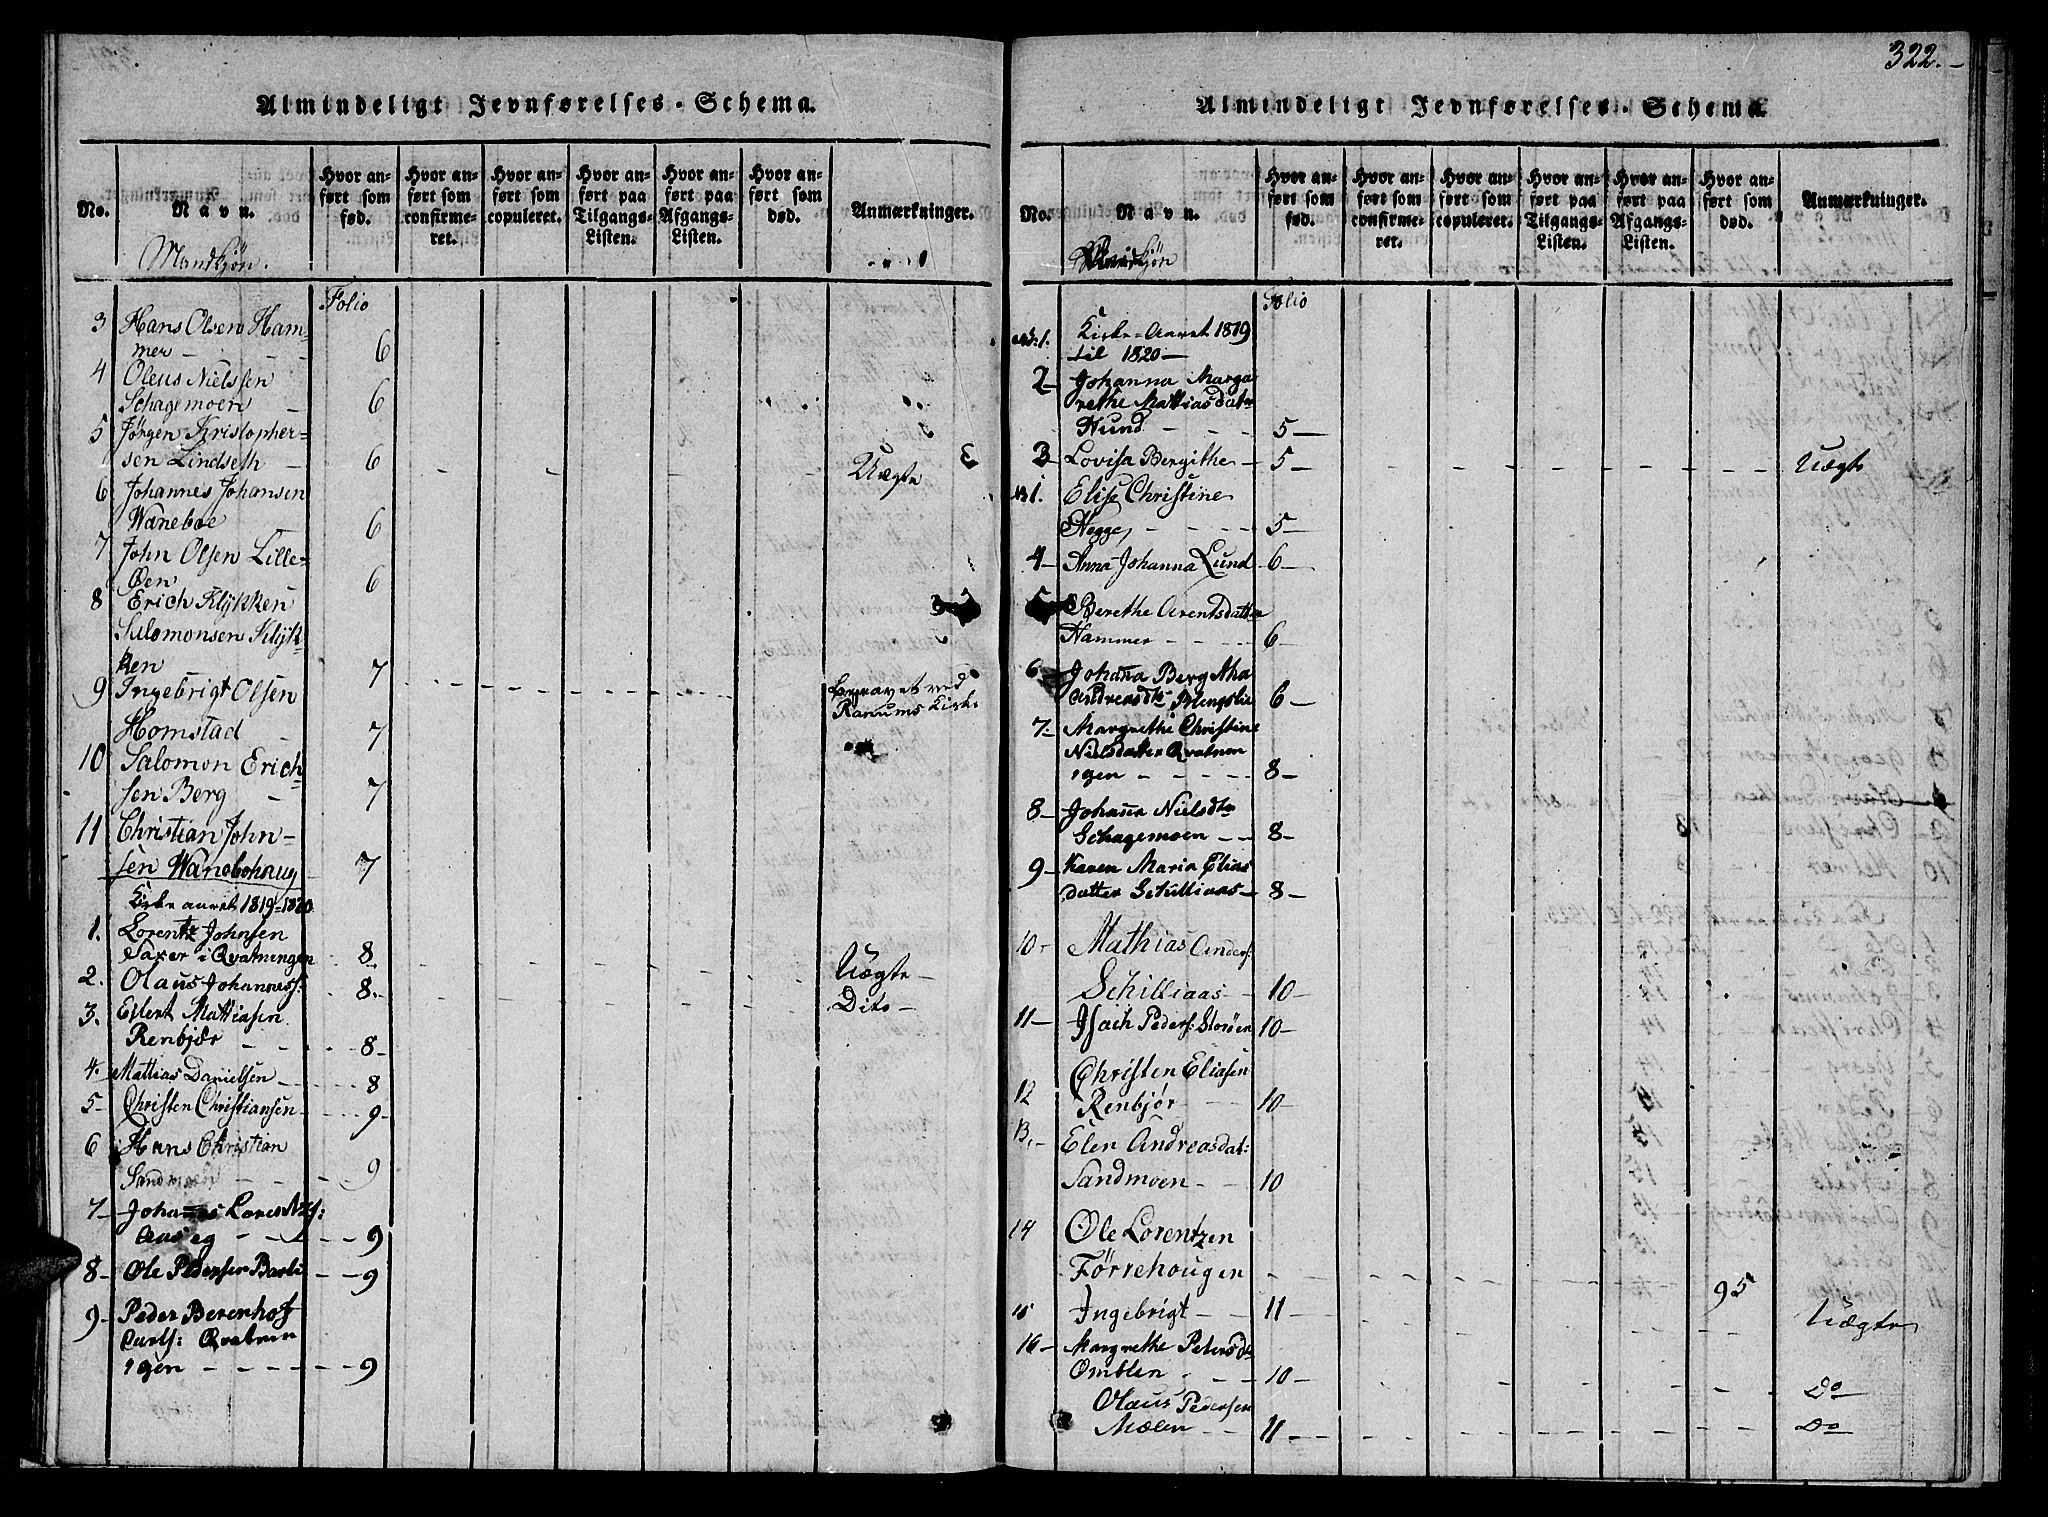 Almindeligt Jevnførelses-Schema.
No.
Navn.
Hvor an-
ført som
fød.
Hvor an-
ført som
confirme-
ret.
Hvor an-
ført som
copuleret.
Hvor an-
ført paa
Tilgangs-
Listen.
Hvor an-
ført paa
Afgangs-
Listen.
Hvor an-
ført som
død.
Anmærkninger.
Mandkjön.
Folio
3 Hans Olsen Ham-
mer - 6
4 Oleus Nielssen
Schagemoen - 6
5 Jörgen Kristopher-
sen Lindseth - 6 Uægte
6 Johannes Johansen
Waneboe 6
7 John Olsen Lille-
Øen 6
8 Erich Klykken
Salomonsen Klyk-
ken 7
9 Ingebrigt Olsen begravet ved
Homstad - 7 Ranums Kirke
10 Salomon Erich-
sen Berg - 7
11 Christian John-
sen Wanebohaug 7
Kirke aaret 1819-1820
1. Lorentz Johnsen
Saxer i Qvatningen 8- Uægte -
2. Olaus Johanness: 8. Dito -
3. Eilert Mattiasen
Renbjør - - - 8-
4. Mattias Danielsen - - 8
5- Christen Christiansen - - 9-
6 Hans Christian
Sandmoen - - - 9
7- Johannes Lorentzs:
Aaseg - - - 9
8- Ole Pedersen Barlie - - 9
9- Peder Berenhof
Carls: Qvatnin
igen - - - - - 9
322.-
Almindeligt Jevnførelses-Schema
No.
Navn.
Hvor an-
ført som
fød.
Hvor an-
ført som
confirme-
ret.
Hvor an-
ført som
copuleret.
Hvor an-
ført paa
Tilgangs-
Listen.
Hvor an-
ført paa
Afgangs-
Listen.
Hvor an-
ført som
død.
Anmærkninger.
Folio
1. Kirke-Aaret 1819
til 1820-
2- Johanna Marga
rethe Mattiasdater
Hund - - - 5-
3- Lovisa Bergithe- 5- Uægte
1. Elise Christine
Hegge, - - - - 5-
4- Anna Johanna Lund -6-
5- Berethe Arentsdatter
Hammer - - - - 6
6 Johanna Bergitha
Andreasdtr Blengslie 6-
7- Margrethe Christine
Nielsdatter Qvatnin
igen - - - - - 8-
8- Johanna Nielsdtr
Schagemoen - - 8-
9- Karen Maria Elias
datter Schilliaas- 8-
10- Mathias Anders:
Schilliaas- 10-
11- Isach Peders: Storöen 10-
12 Christen Eliasen
Renbjör - - 10-
13.- Elen Andreasdat:
Sandmoen - - 10
14 Ole Lorentzen
Förrehougen 95
15 Ingebrigt - - 11- Uægte
16- Margrethe Petersdtr
Omblen - - - 10- Do
Olaus Pedersen
Mælen - - 11- Do